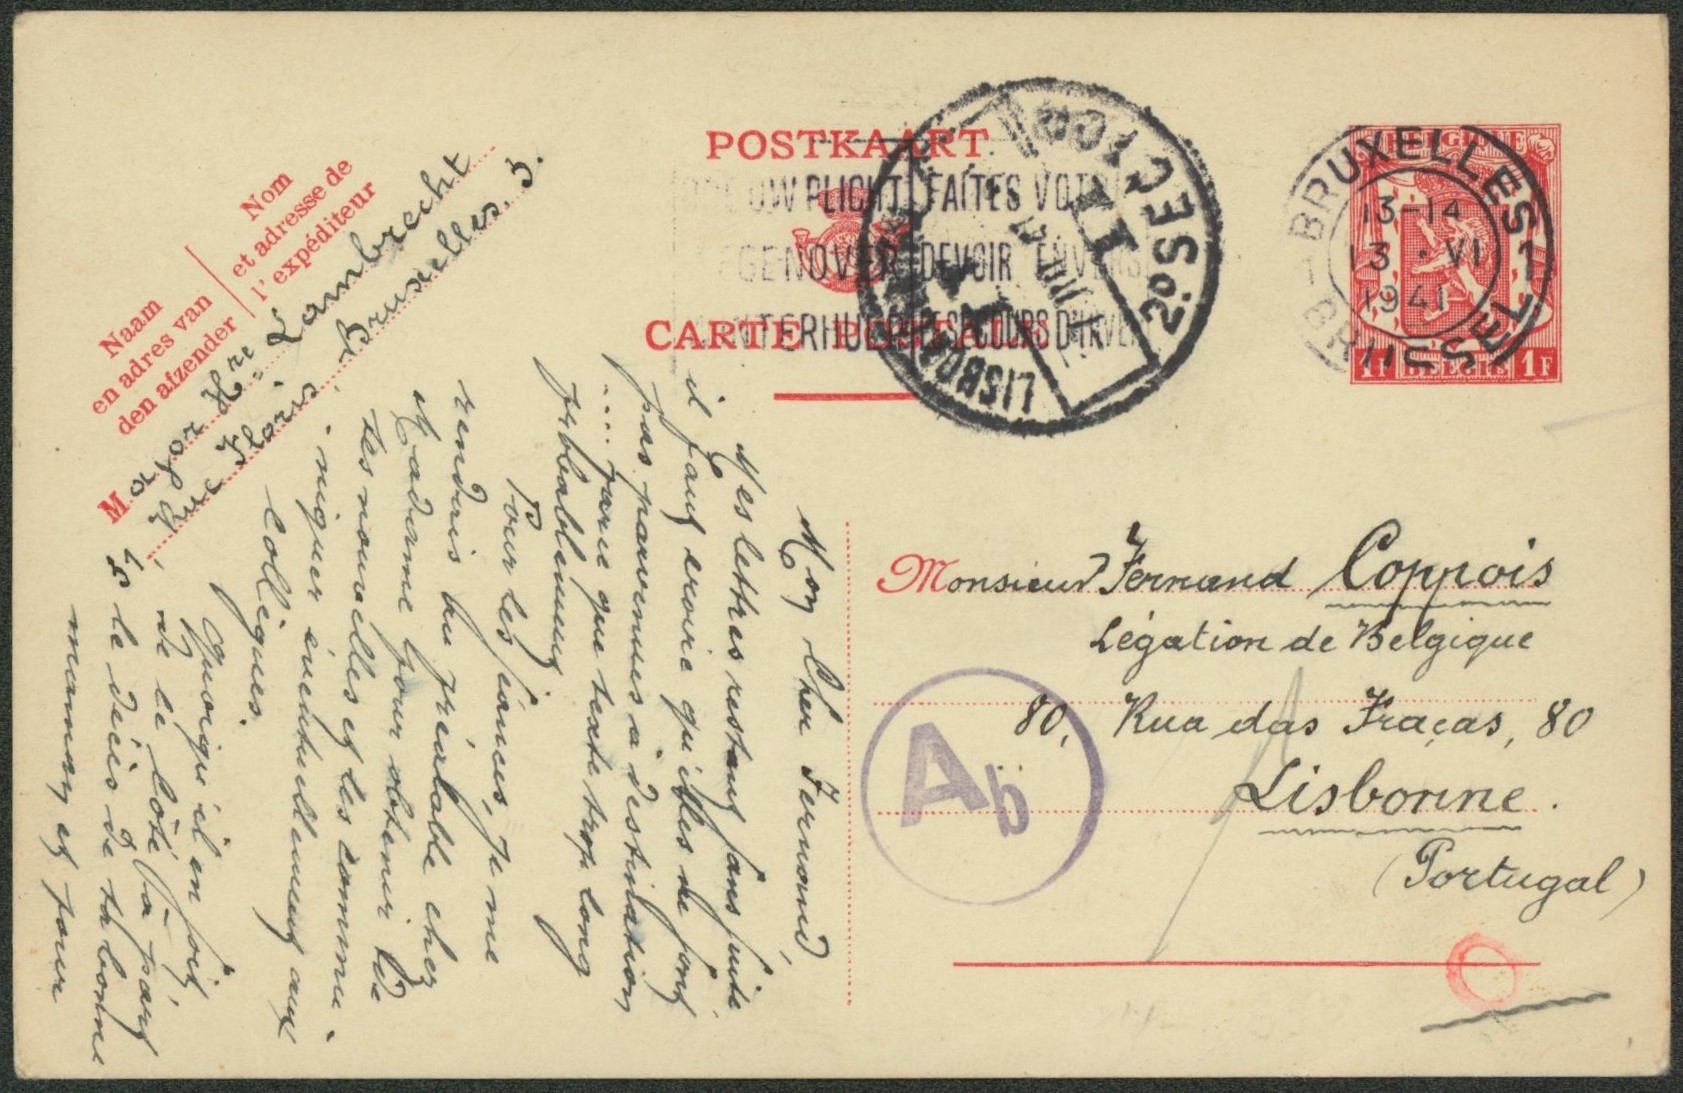 POSTKAART
CARTE POSTALE
Naam
en adres van
den afzender
Nom
et adresse de
l'expéditeur
Major Hre. Lambrecht
Rue Floris, 5
Bruxelles, 3.
PLICHT FAITES
DEVOIR ENVERS
SECOURS D'HIVER
LISBOA
2º SECÇÃO
BELGIQUE
1F BELGIE 1F
BRUXELLES 1
13-14
13 · VI
1941
1 BRUSSEL
Monsieur Fernand Coppois
Légation de Belgique
80, Rua das Fraças, 80
Lisbonne.
(Portugal)
Ab
Mon cher Fernand,
Mes lettres restant sans suite
il faut croire qu'elles ne sont
pas parvenues à destination
.... parce que texte trop long
probablement
Pour les séances, je me
rendrais au préalable chez
Madame pour obtenir de
tes nouvelles et les commu-
niquer éventuellement aux
Collègues.
Quoiqu'il en soit,
de ce côté là à part
le décès de ta bonne
maman et pour